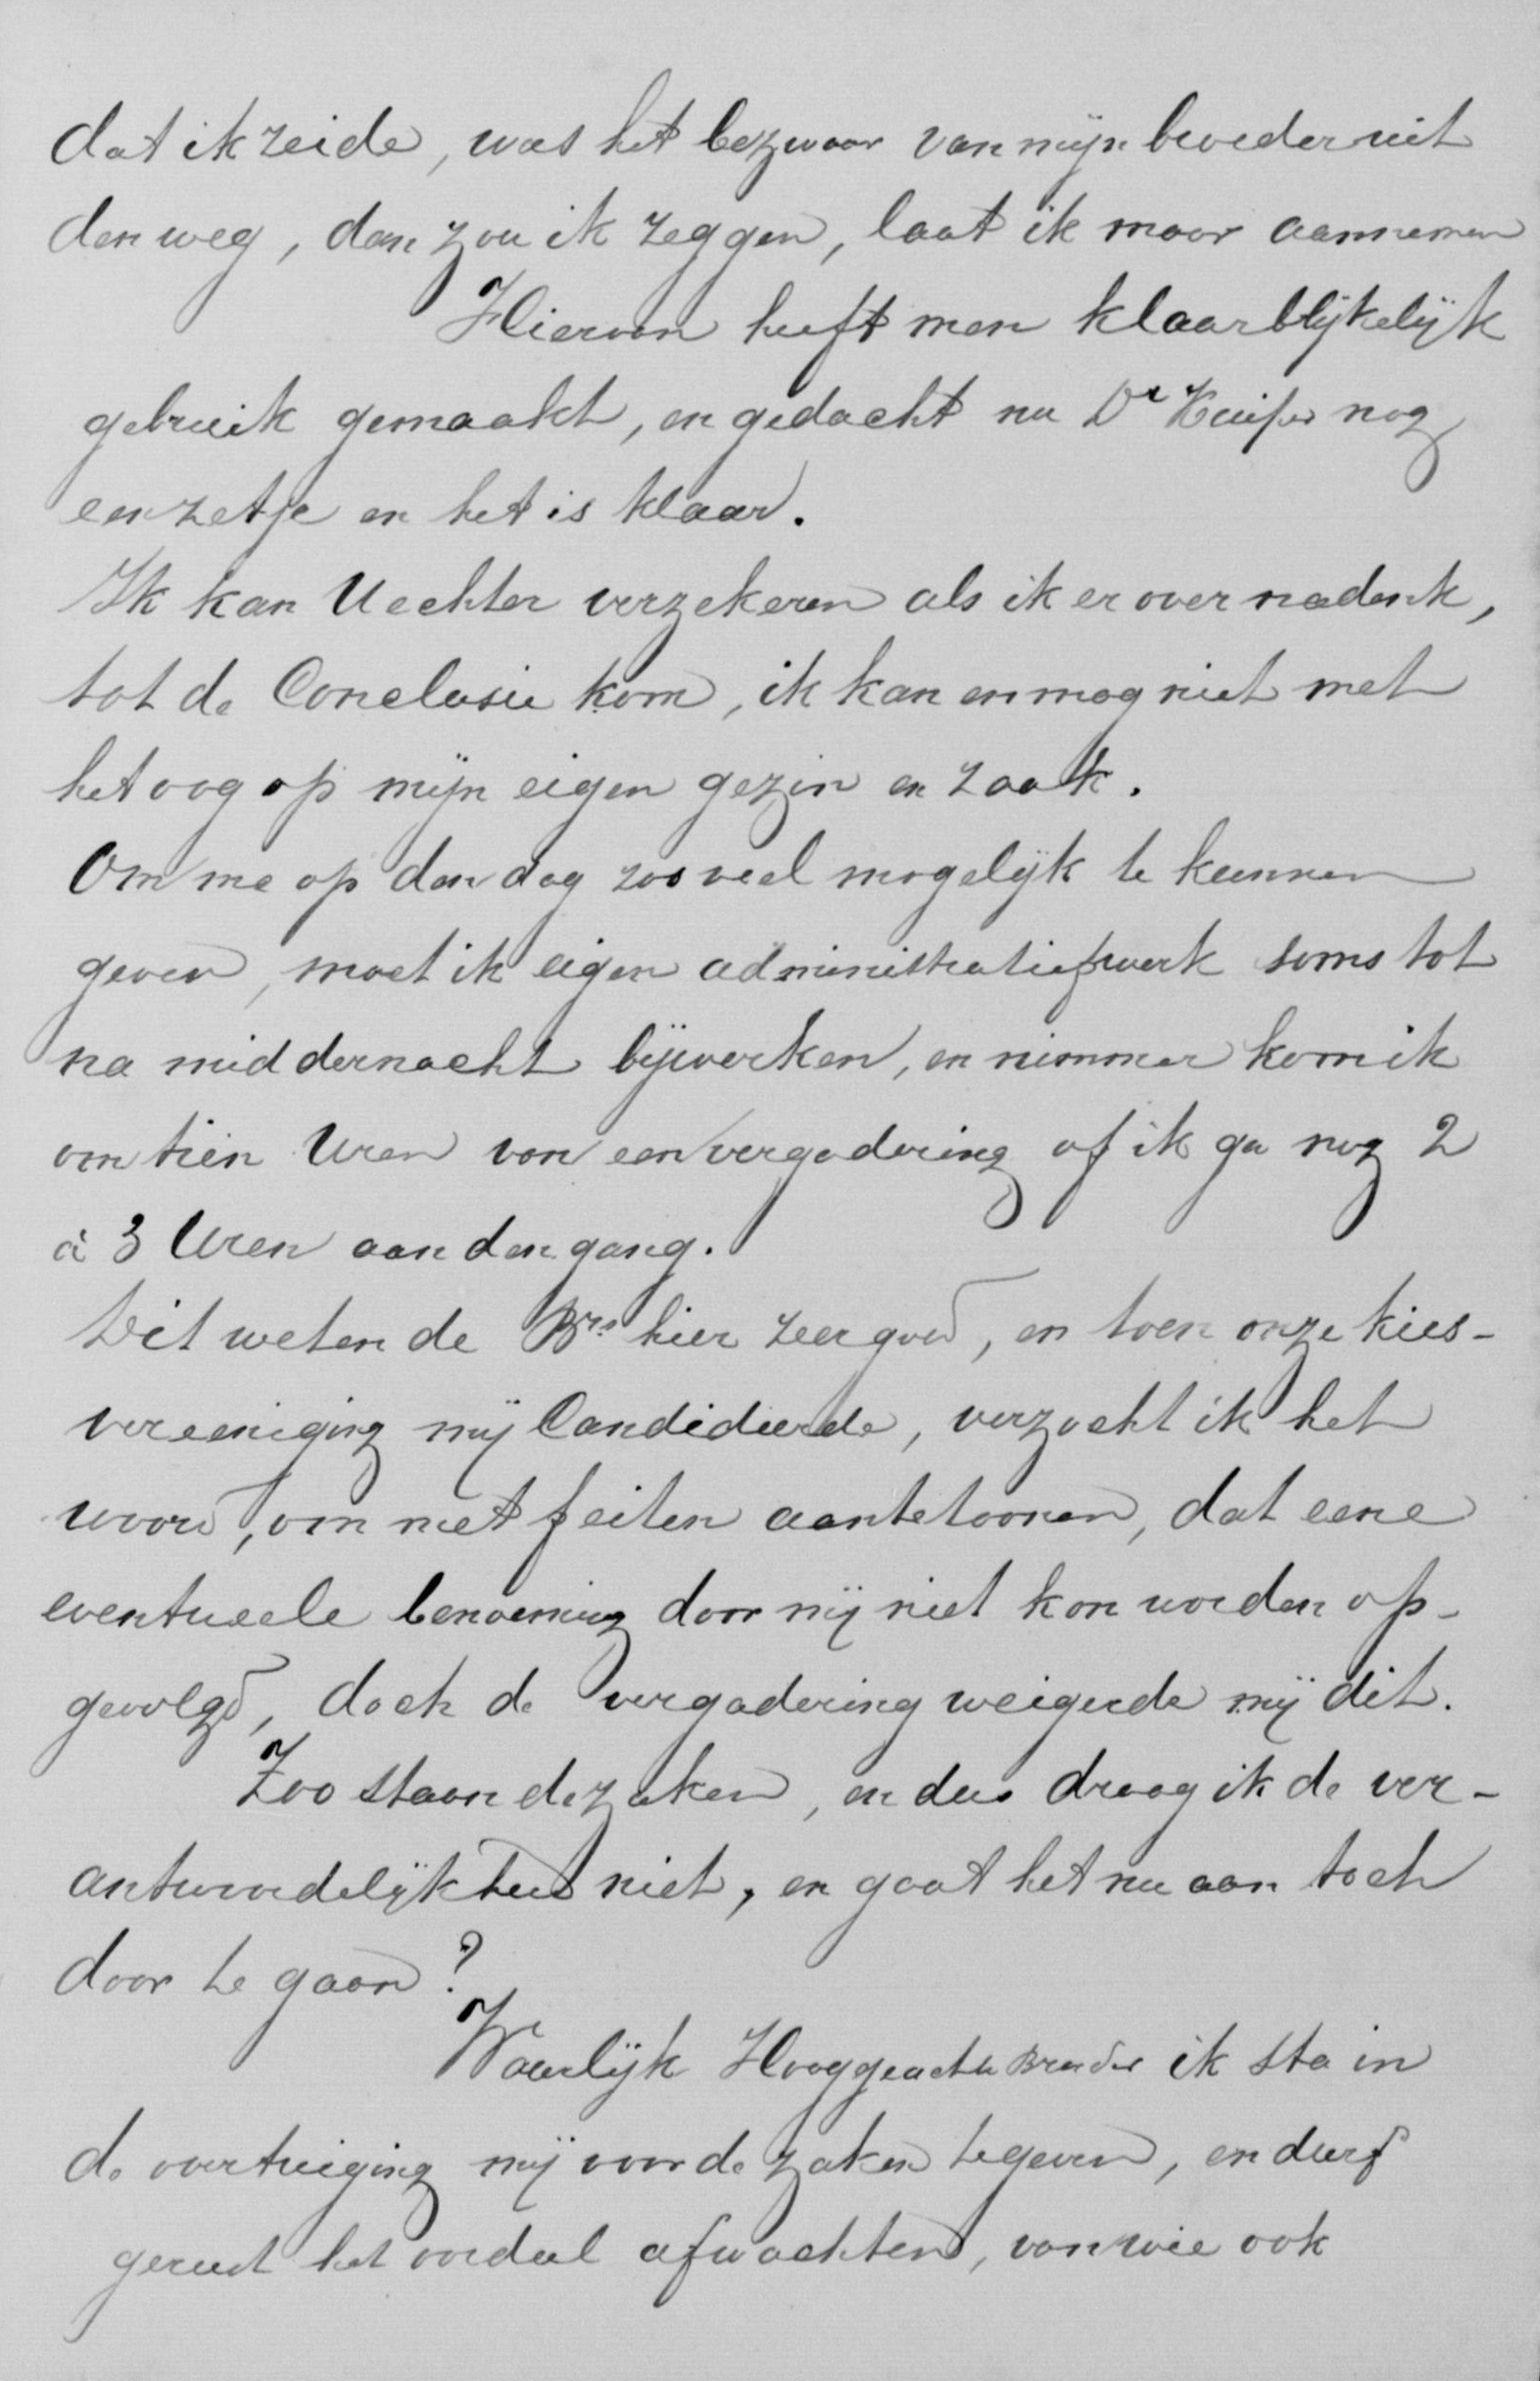 dat ik zeide, was het bezwaar van mijn broeder uit
den weg, dan zou ik zeggen, laat ik maar aannemen
Hiervan heeft men klaarblijkelijk
gebruik gemaakt, en gedacht nu Dr Kuiper nog
een zetje en het is klaar.
Ik kan U echter verzekeren als ik er over nadenk,
tot de Conclusie kom, ik kan en mag niet met
het oog op mijn eigen gezin en zaak.
Om me op den dag zooveel mogelijk te kunnen
geven, moet ik eigen administratiefwerk soms tot
na middernacht bijwerken, en nimmer kom ik
om tien Uren van een vergadering of ik ga nog 2
à 3 Uren aan den gang.
Dit weten de Brs hier zeer goed, en toen onze kies-
vereeniging mij Candideerde, verzocht ik het
woord, om met feiten aantetoonen, dat eene
eventueele benoeming door mij niet kon worden op-
gevolgd, doch de vergadering weigerde mij dit.
Zoo staan de zaken, en dus draag ik de ver-
antwoordelijkheid niet, en gaat het nu aan toch
door te gaan?
Waarlijk Hooggeachte Broeder ik sta in
de overtuiging mij voor de zaken te geven, en durf
gerust het oordeel afwachten, van wie ook